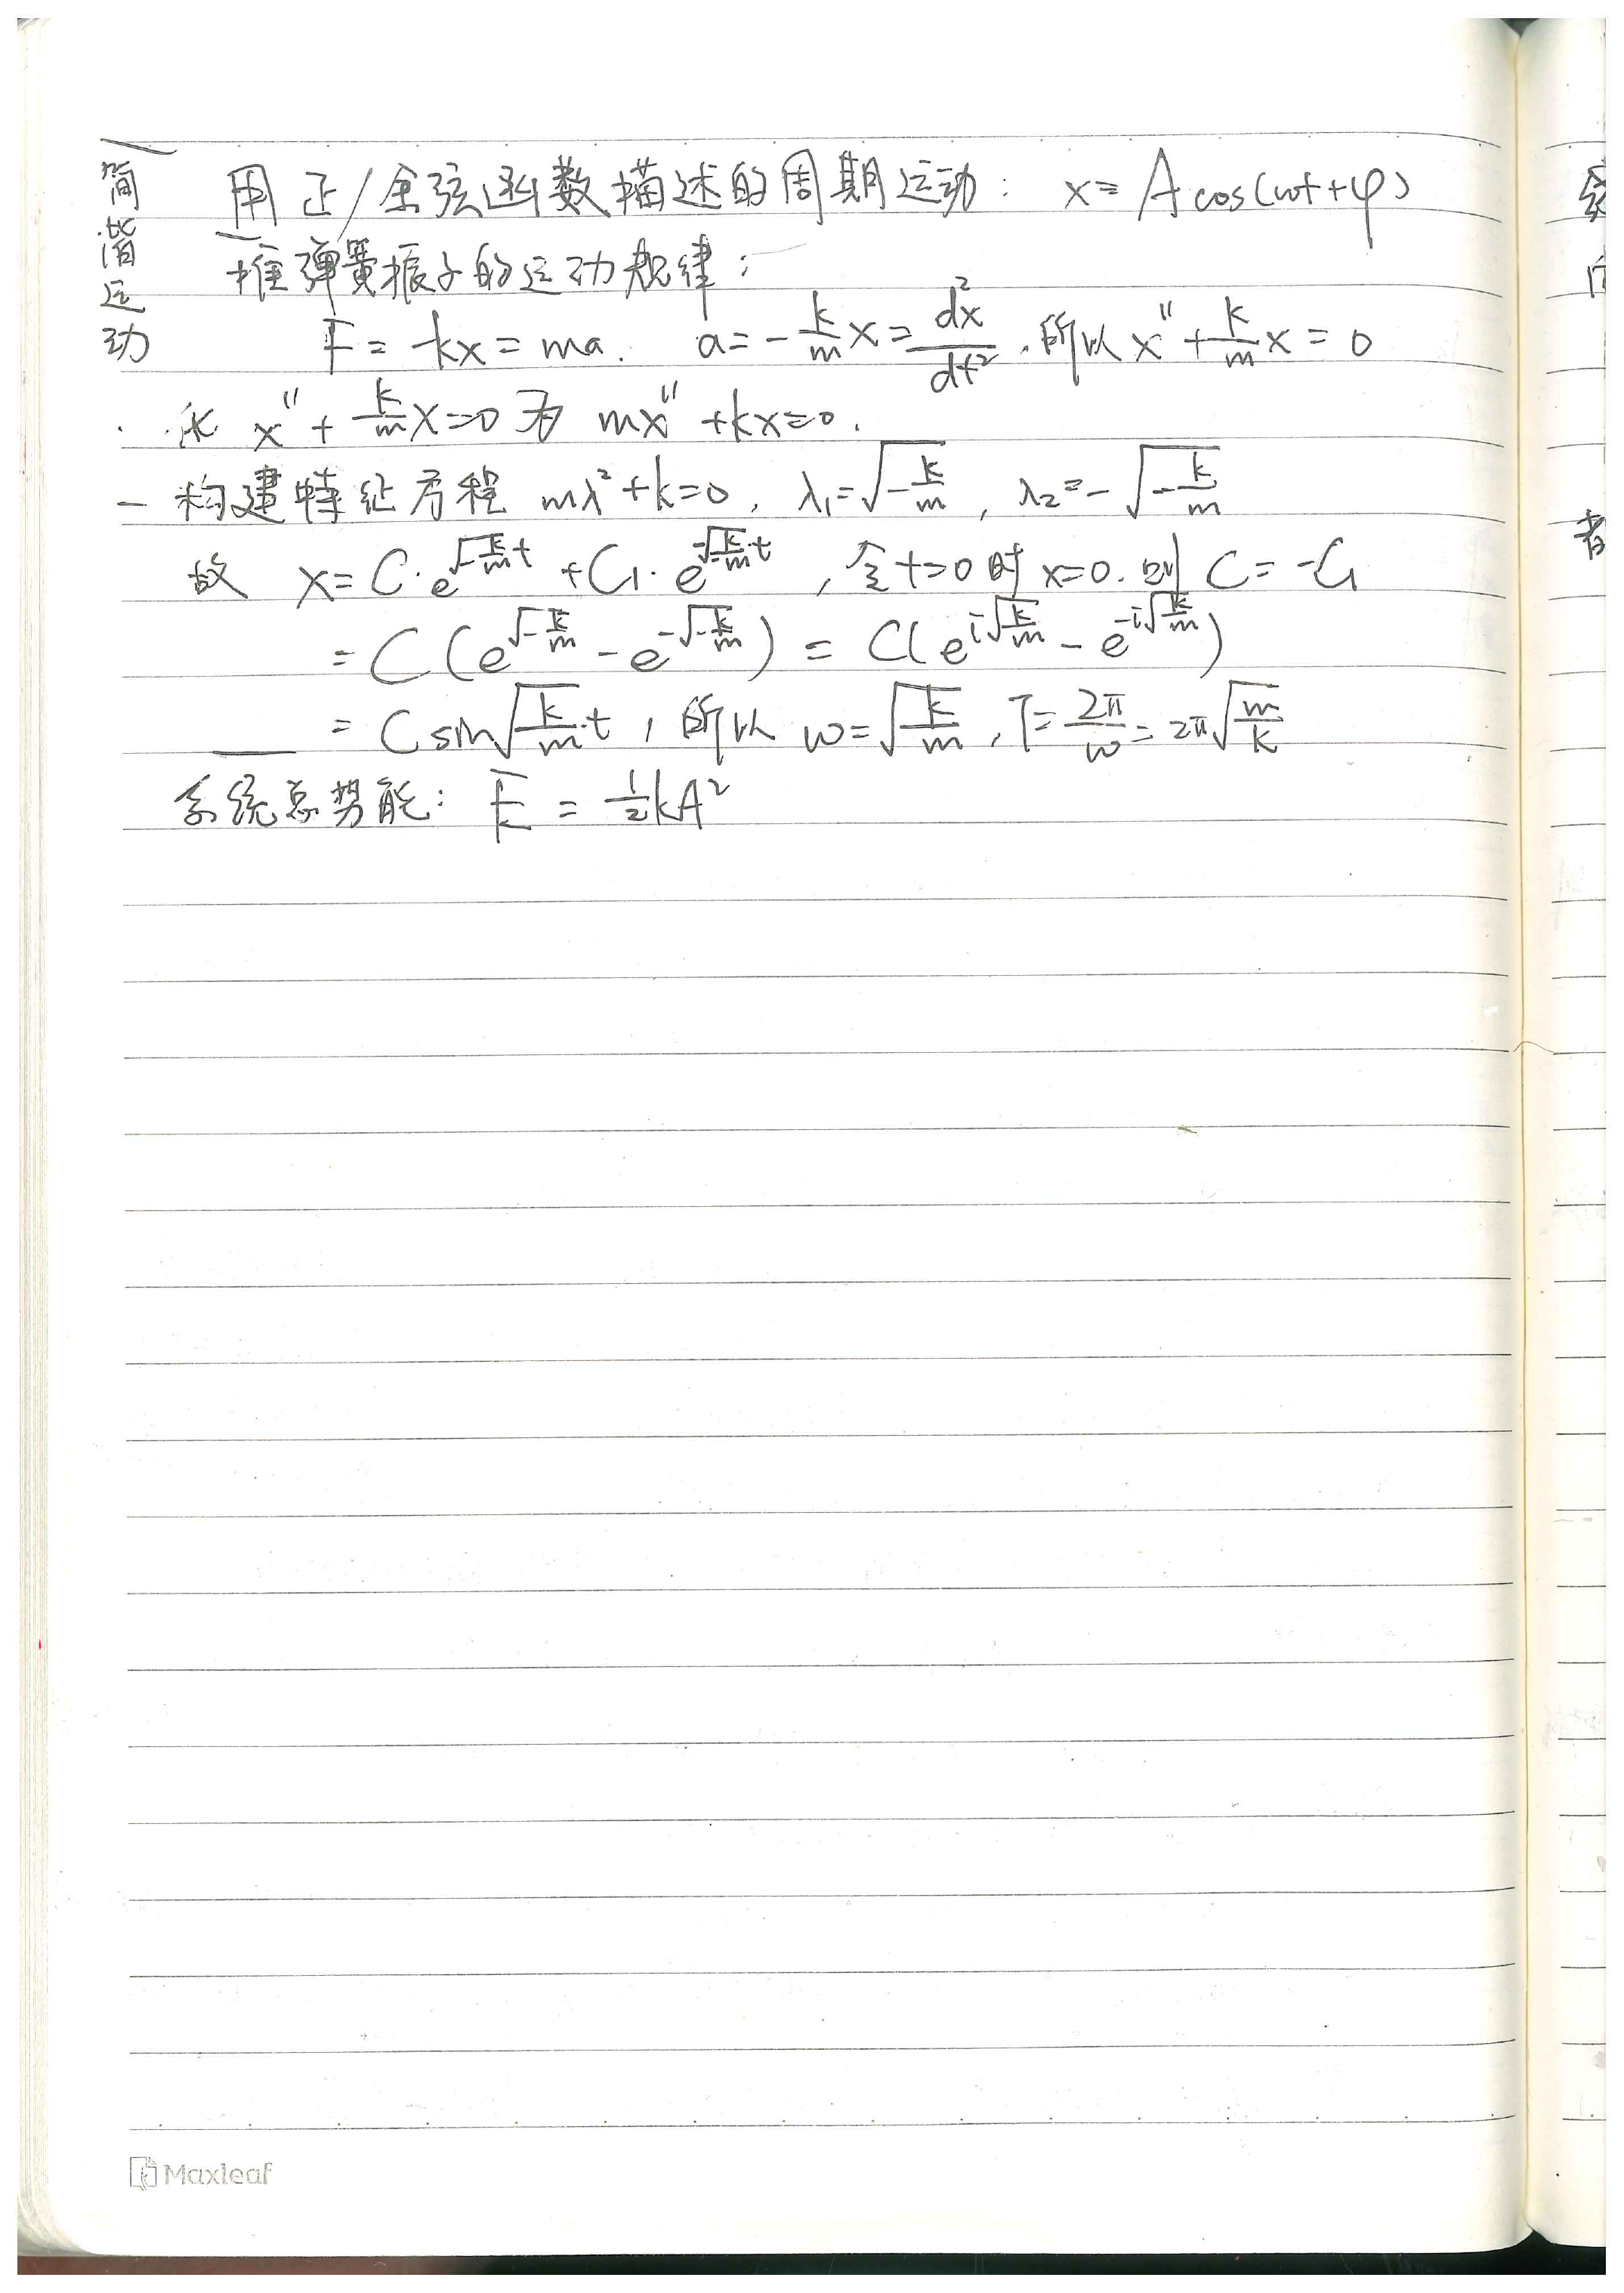 简谐运动
用正/余弦函数描述的周期运动： x = A cos(ωt+φ)
推弹簧振子的运动规律：
F = -kx = ma. a = -k/m x = d²x/dt² , 所以 x'' + k/m x = 0
化 x'' + k/m x = 0 为 mx'' + kx = 0 .
构建特征方程 mλ² + k = 0 , λ₁ = √(-k/m) , λ₂ = -√(-k/m)
故 x = C·e^(√(-k/m) t) + C₁·e^(-√(-k/m) t) , 令 t=0 时 x=0. 则 C = -C₁
= C(e^(√(-k/m)) - e^(-√(-k/m))) = C(e^(i√(k/m)) - e^(-i√(k/m)))
= C sin√(k/m) t , 所以 ω = √(k/m) , T = 2π/ω = 2π√(m/k)
系统总势能： E = ½kA²
者
Maxleaf